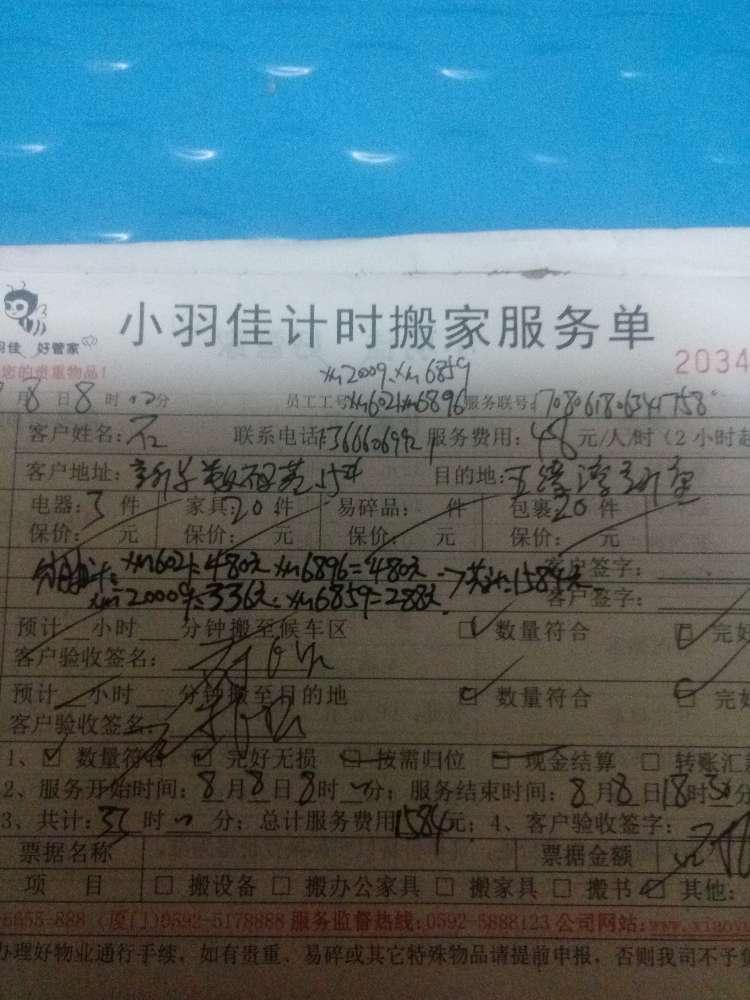 小羽佳计时搬家服务单
羽佳 好管家
您的贵重物品!
2034
xm2009 xm6859
月8日8时 分 员工工号:xm6021xm6896 服务联号:
客户姓名:石 联系电话:1366606992 服务费用:48元/人/时(2小时起
客户地址: 目的地:五缘湾
电器:3件 家具:20件 易碎品: 件 包裹:20件
保价: 元 保价: 元 保价: 元 保价: 元
xm6021=480元 xm6896=480元 共计:1584元 客户签字:
xm20009=336元 xm6859=288元 客户签字:
预计 小时 分钟搬至候车区 数量符合 完好
客户验收签名:
预计 小时 分钟搬至目的地 数量符合 完好
客户验收签名:
1、 数量符合 完好无损 按需归位 现金结算 转账汇
2、服务开始时间:8月8日8时 分;服务结束时间:8月8日18时30分
3、共计:33时 分;总计服务费用1584元;4、客户验收签字:
票据名称 票据金额
项 目 搬设备 搬办公家具 搬家具 搬书 其他:
6655-888 (厦门)0592-5178888 服务监督热线:0592-5888123 公司网站:www.xiaoy
办理好物业通行手续,如有贵重、易碎或其它特殊物品请提前申报,否则我司不予